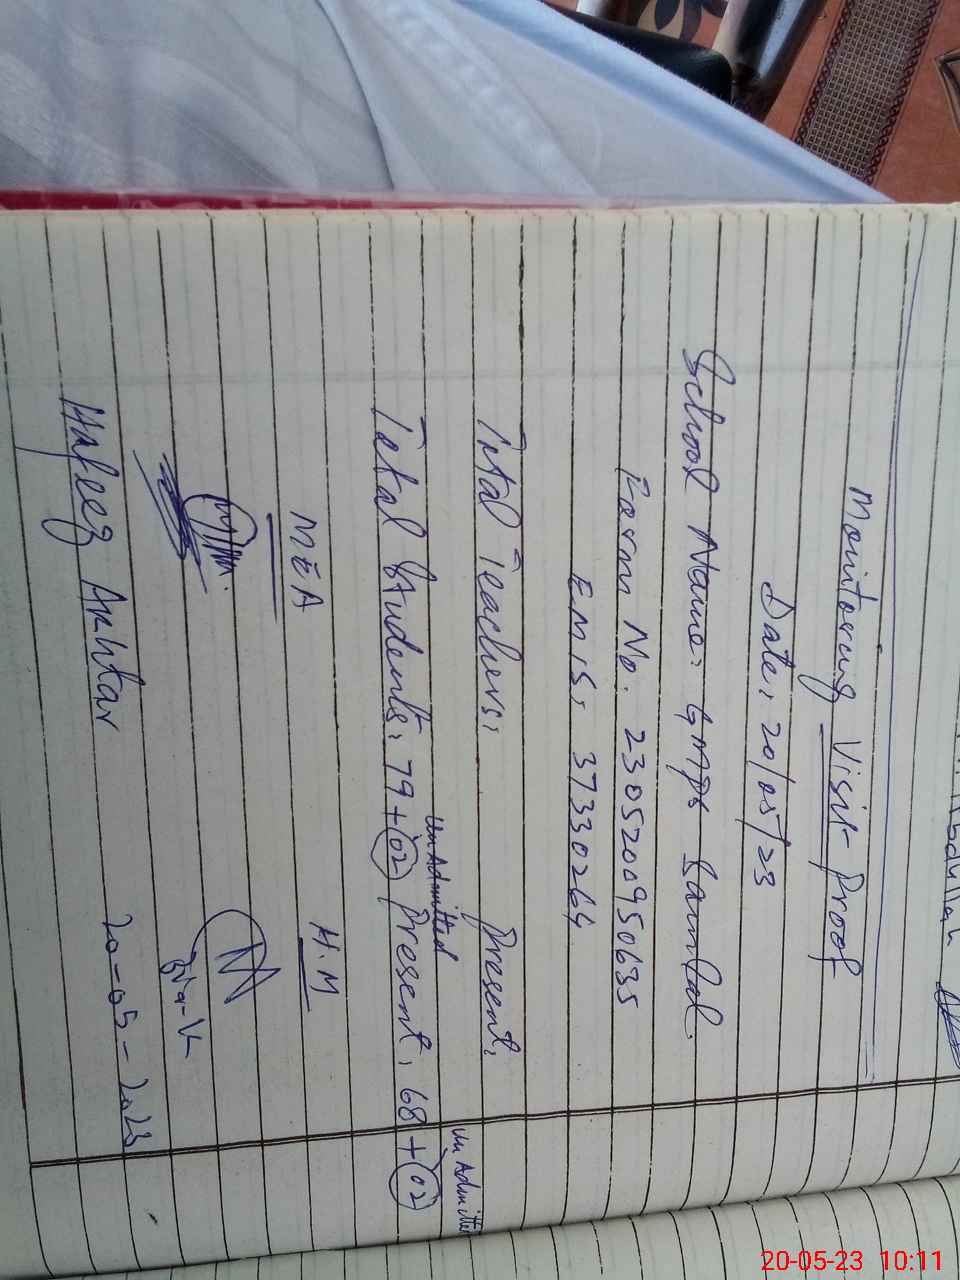 Monitoring Visit Proof
Date: 20/05/23
School Name: GMPS
No. 2305200950635
EMIS: 37330264
Total Teachers: Present:
Un Admitted Un Admitted
Total Students: 79 + 02 Present: 68 + 02
MEA H.M
Hafeez Akhtar 20-05-2023
20-05-23 10:11